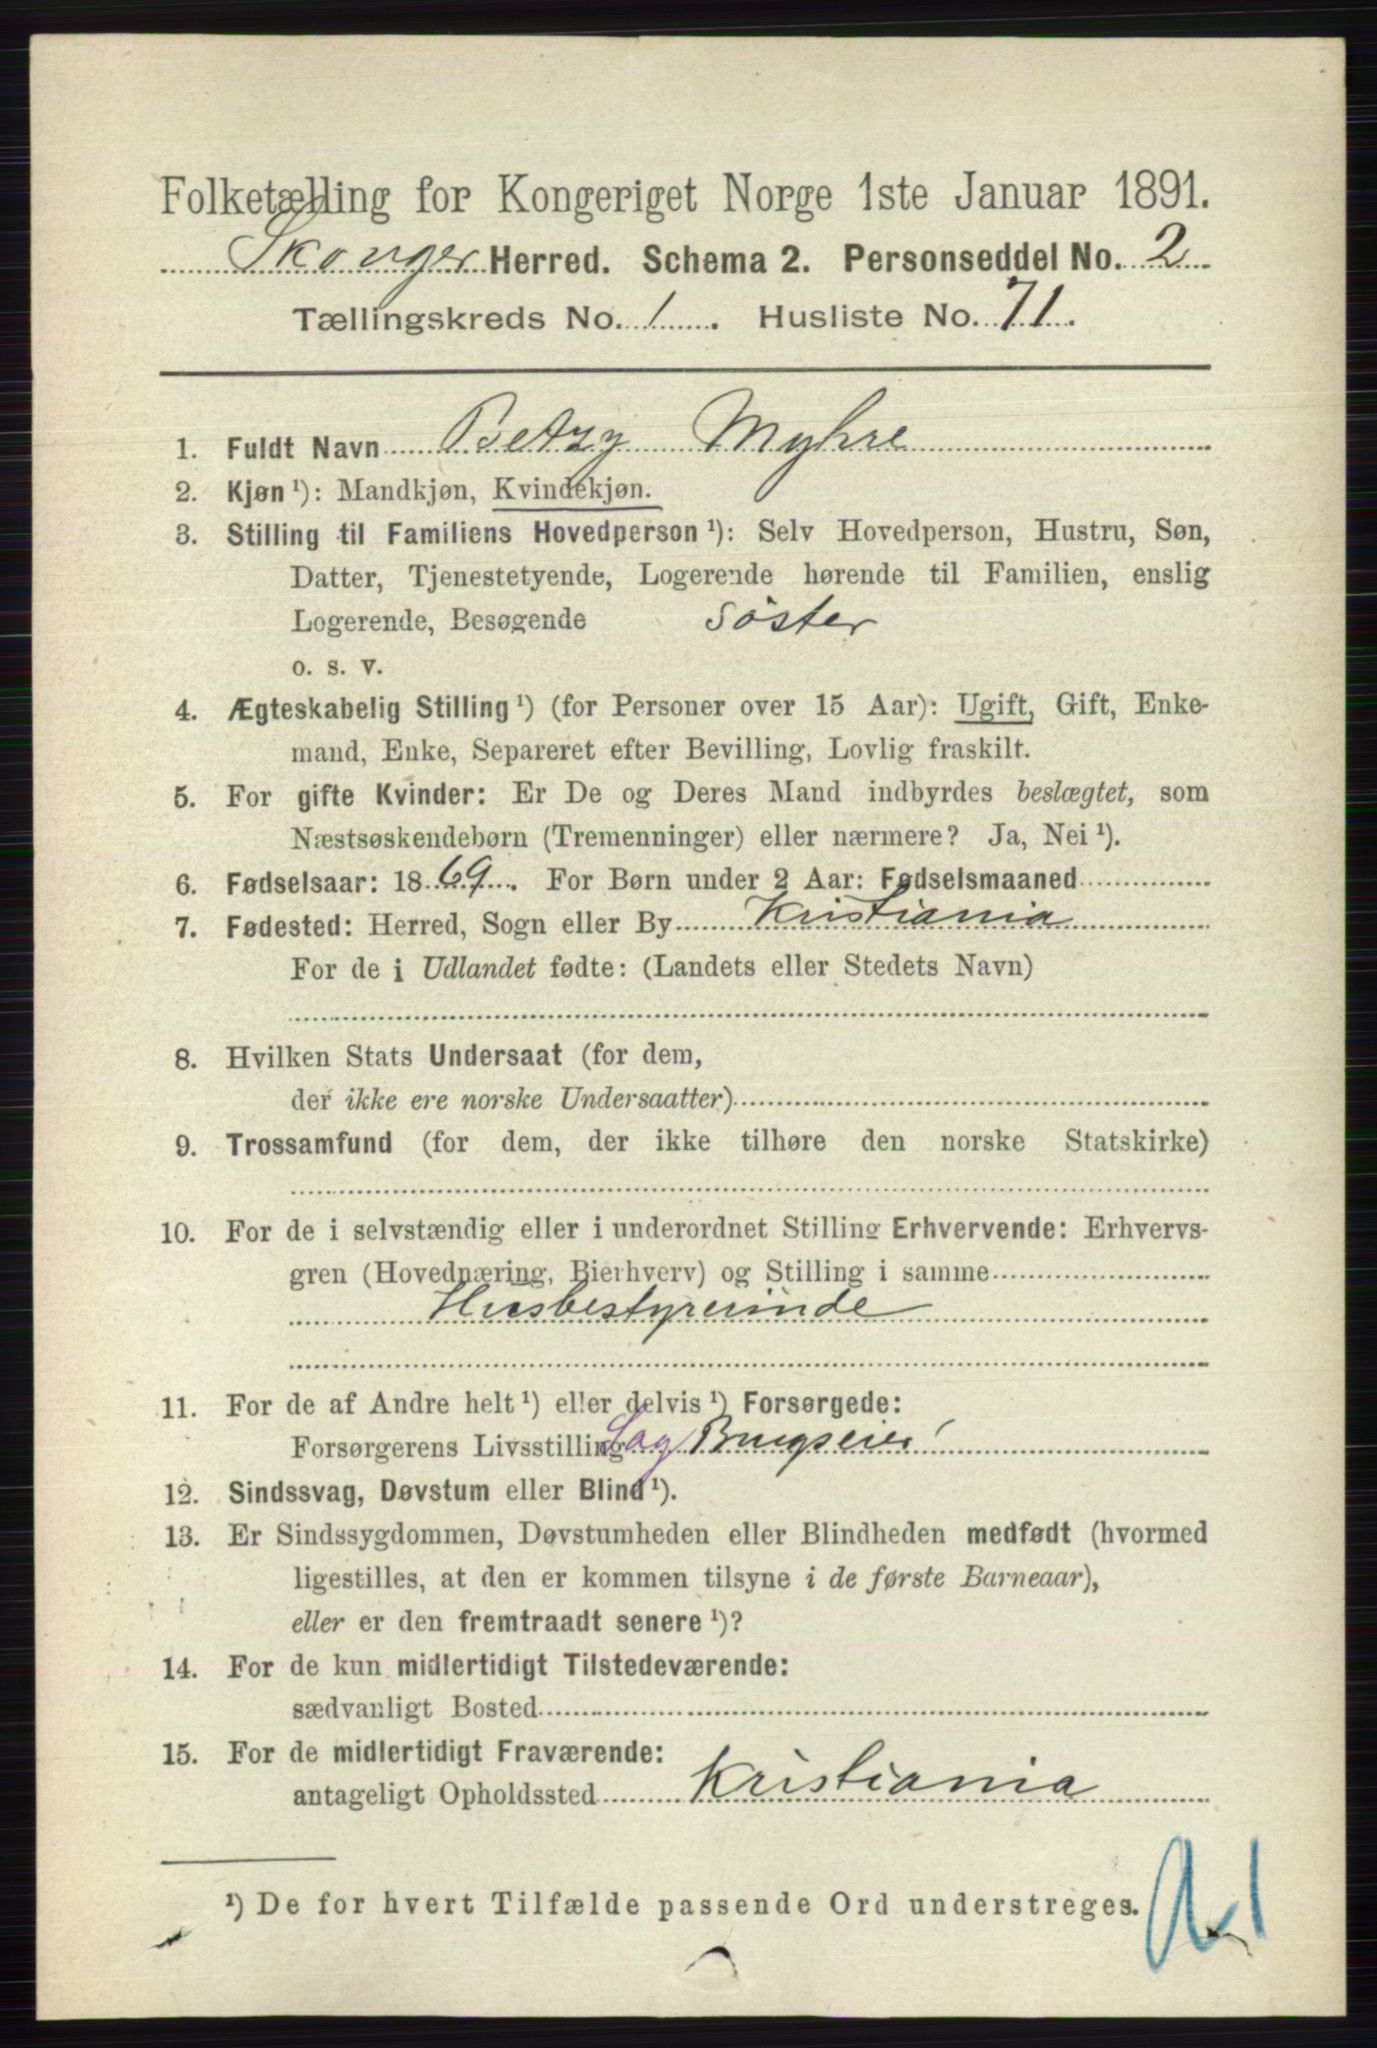 Folketælling for Kongeriget Norge 1ste Januar 1891.
Skouger Herred. Schema 2. Personseddel No. 2
Tællingskreds No. 1. Husliste No. 71.
1. Fuldt Navn Betzy Myhre
2. Kjøn ¹): Mandkjøn, Kvindekjøn.
3. Stilling til Familiens Hovedperson ¹): Selv Hovedperson, Hustru, Søn,
Datter, Tjenestetyende, Logerende hørende til Familien, enslig
Logerende, Besøgende Söster
o. s. v.
4. Ægteskabelig Stilling ¹) (for Personer over 15 Aar): Ugift, Gift, Enke-
mand, Enke, Separeret efter Bevilling, Lovlig fraskilt.
5. For gifte Kvinder: Er De og Deres Mand indbyrdes beslægtet, som
Næstsøskendebørn (Tremenninger) eller nærmere? Ja, Nei ¹).
6. Fødselsaar: 1869. For Børn under 2 Aar: Fødselsmaaned
7. Fødested: Herred, Sogn eller By Kristiania
For de i Udlandet fødte: (Landets eller Stedets Navn)
8. Hvilken Stats Undersaat (for dem,
der ikke ere norske Undersaatter)
9. Trossamfund (for dem, der ikke tilhøre den norske Statskirke)
10. For de i selvstændig eller i underordnet Stilling Erhvervende: Erhvervs-
gren (Hovednæring, Bierhverv) og Stilling i samme
Husbestyrerinde
11. For de af Andre helt ¹) eller delvis ¹) Forsørgede:
Forsørgerens Livsstilling Sag Brugseier
12. Sindssvag, Døvstum eller Blind ¹).
13. Er Sindssygdommen, Døvstumheden eller Blindheden medfødt (hvormed
ligestilles, at den er kommen tilsyne i de første Barneaar),
eller er den fremtraadt senere ¹)?
14. For de kun midlertidigt Tilstedeværende:
sædvanligt Bosted
15. For de midlertidigt Fraværende:
antageligt Opholdssted Kristiania
¹) De for hvert Tilfælde passende Ord understreges.